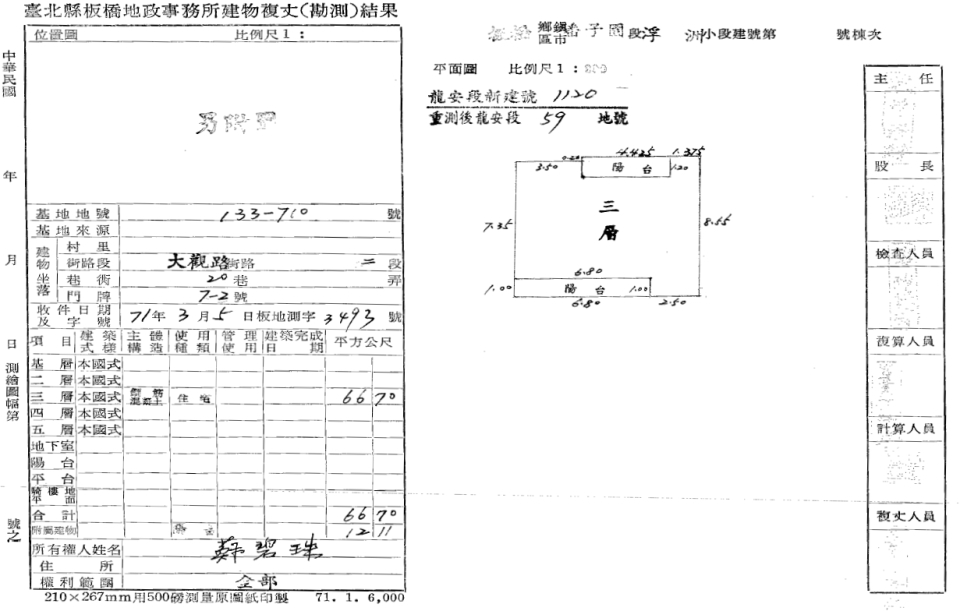 臺北縣板橋地政事務所建物複丈(勘測)結果
位置圖 比例尺1:
另附圖
中華民國 年 月 日 測繪圖幅第 號之
基地地號 133-710 號
基地來源
建物坐落
村里
街路段 大觀路街路 二 段
巷衖 20 巷 弄
門牌 7-2 號
收件日期及字號 71年 3月 5日板地測字 3493 號
項目 建築式樣 主體構造 使用種類 管理使用 建築完成日期 平方公尺
基層 本國式
二層 本國式
三層 本國式 住宅 66 70
四層 本國式
五層 本國式
地下室
陽台
平台
騎樓地平面
合計 66 70
附屬建物 12 11
所有權人姓名 蘇碧珠
住所
權利範圍 全部
210×267mm用500磅測量原圖紙印製 71. 1. 6,000
鄉鎮區市 番子園段浮洲小段建號第 號棟次
平面圖 比例尺1:
龍安段新建號 1120
重測後龍安段 59 地號
0.20 4.425 1.375
3.50 陽台 1.20
三層
7.35 8.55
6.80
1.00 陽台 1.00
6.80 2.50
主任
股長
檢查人員
複算人員
計算人員
複丈人員